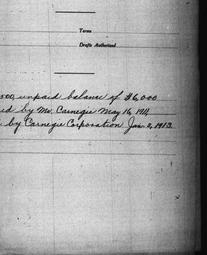 Terms
Drafts Authorized
500, unpaid balance of $6,000
ed by Mr. Carnegie May 16, 1911,
by Carnegie Corporation Jan. 2, 1913.